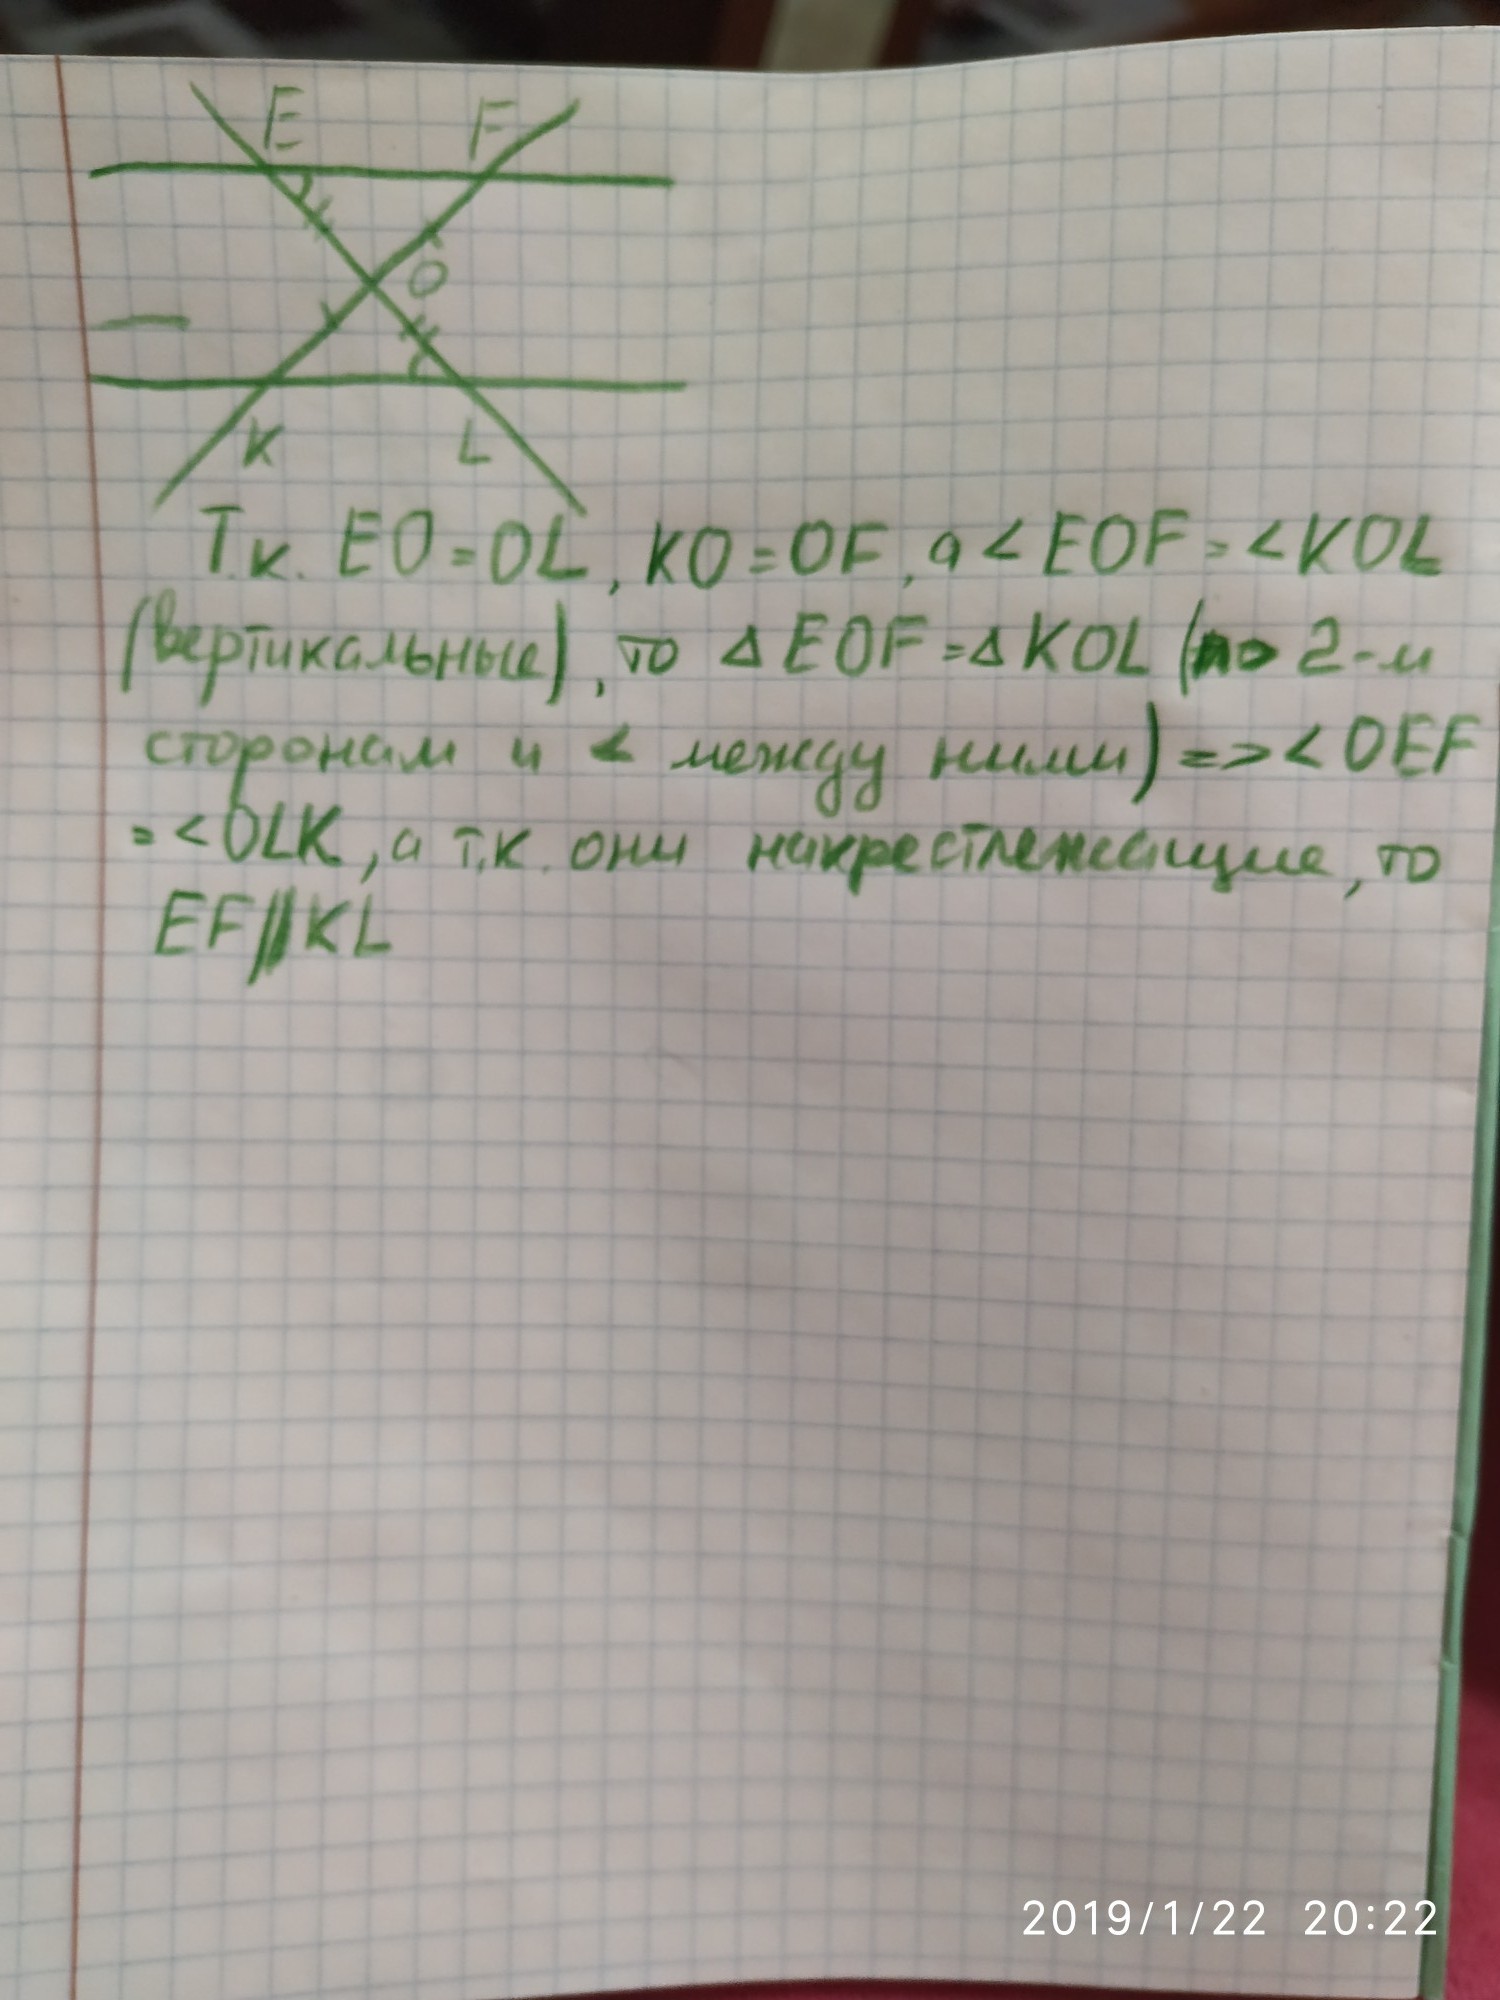 E F
O
K L
Т.к. EO=OL, KO=OF, а <EOF=<KOL
(вертикальные), то ΔEOF=ΔKOL (по 2-м
сторонам и < между ними) => <OEF
=<OLK, а т.к. они накрестлежащие, то
EF||KL
2019/1/22 20:22